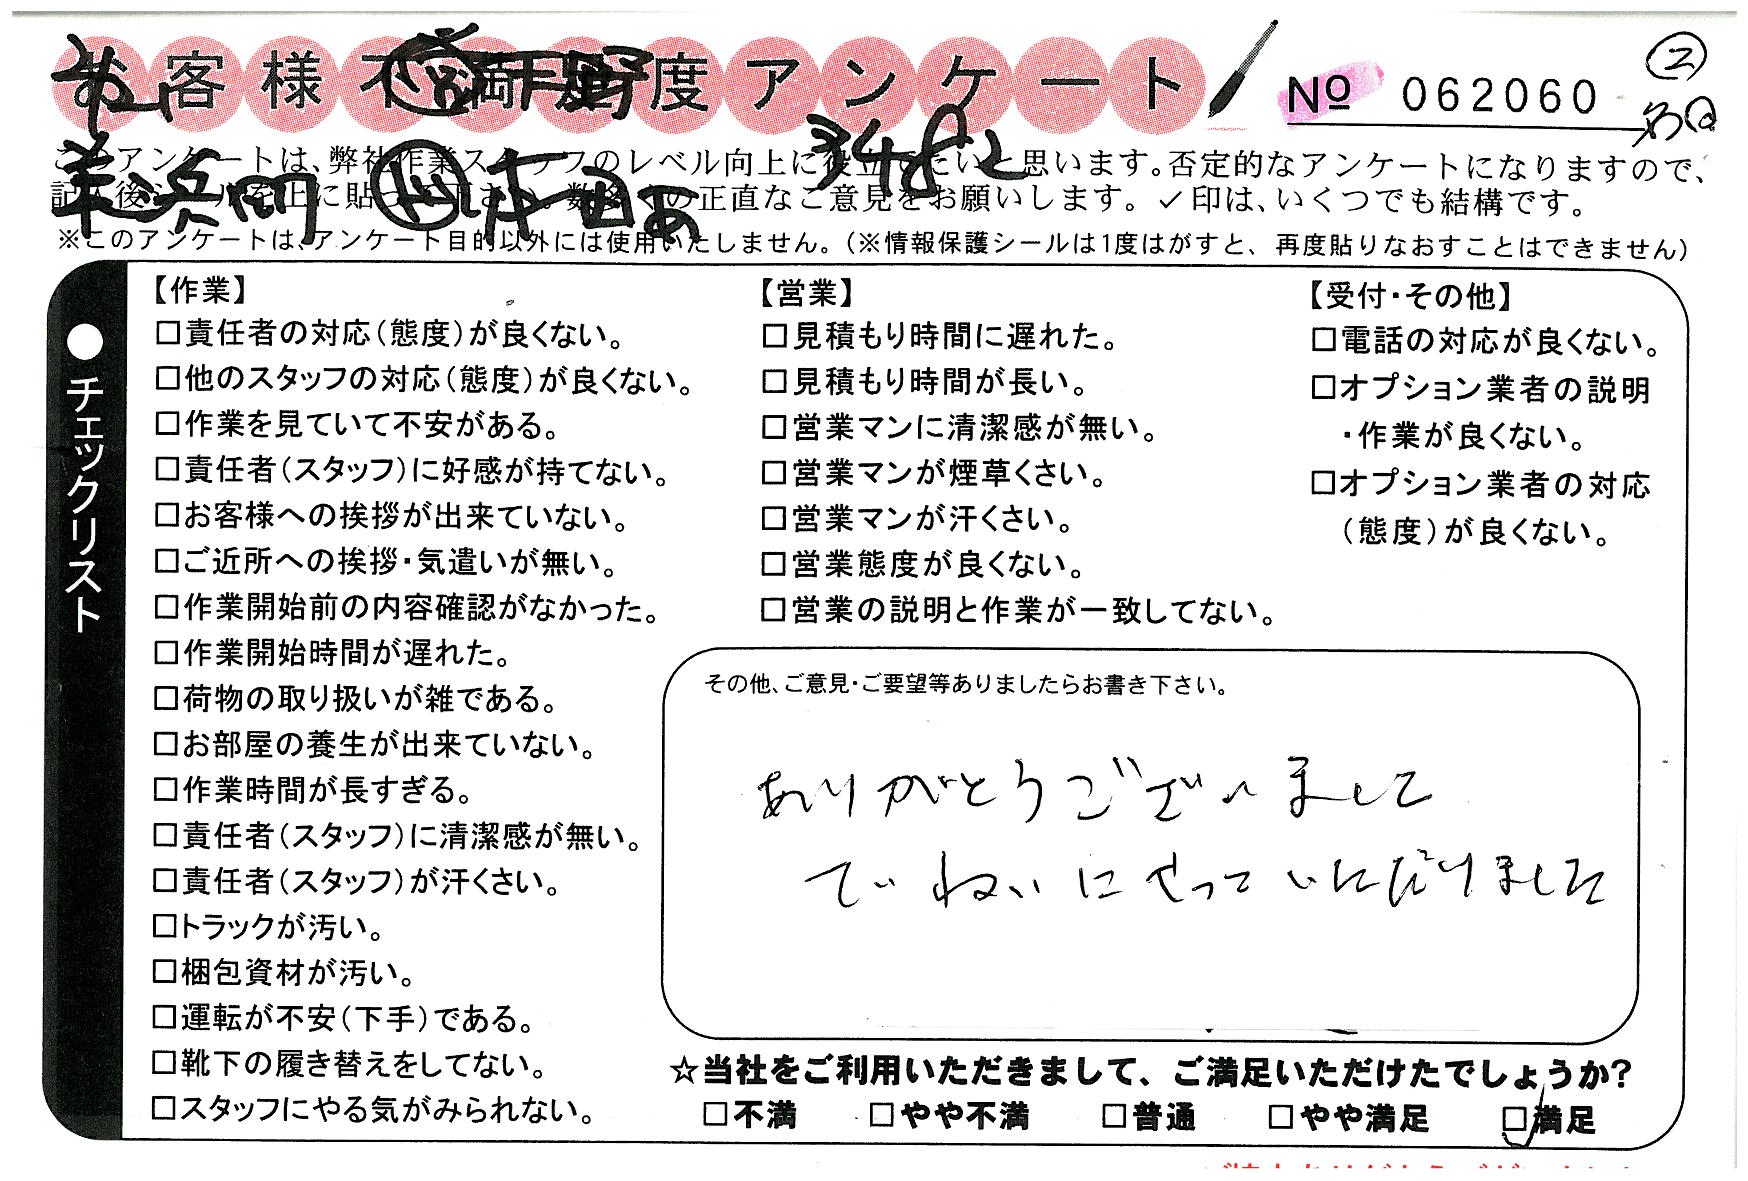 お客様不満足度アンケート
No 062060
②
このアンケートは、弊社作業スタッフのレベル向上に役立てたいと思います。否定的なアンケートになりますので、
記入後シールを上に貼って下さい。数多くの正直なご意見をお願いします。✓印は、いくつでも結構です。
3482
※このアンケートは、アンケート目的以外には使用いたしません。（※情報保護シールは1度はがすと、再度貼りなおすことはできません）
●チェックリスト
【作業】
□責任者の対応（態度）が良くない。
□他のスタッフの対応（態度）が良くない。
□作業を見ていて不安がある。
□責任者（スタッフ）に好感が持てない。
□お客様への挨拶が出来ていない。
□ご近所への挨拶・気遣いが無い。
□作業開始前の内容確認がなかった。
□作業開始時間が遅れた。
□荷物の取り扱いが雑である。
□お部屋の養生が出来ていない。
□作業時間が長すぎる。
□責任者（スタッフ）に清潔感が無い。
□責任者（スタッフ）が汗くさい。
□トラックが汚い。
□梱包資材が汚い。
□運転が不安（下手）である。
□靴下の履き替えをしてない。
□スタッフにやる気がみられない。
【営業】
□見積もり時間に遅れた。
□見積もり時間が長い。
□営業マンに清潔感が無い。
□営業マンが煙草くさい。
□営業マンが汗くさい。
□営業態度が良くない。
□営業の説明と作業が一致してない。
【受付・その他】
□電話の対応が良くない。
□オプション業者の説明
・作業が良くない。
□オプション業者の対応
（態度）が良くない。
その他、ご意見・ご要望等ありましたらお書き下さい。
ありがとうございまして
ていねいにやっていただけました
☆当社をご利用いただきまして、ご満足いただけたでしょうか？
□不満 □やや不満 □普通 □やや満足 ☑満足